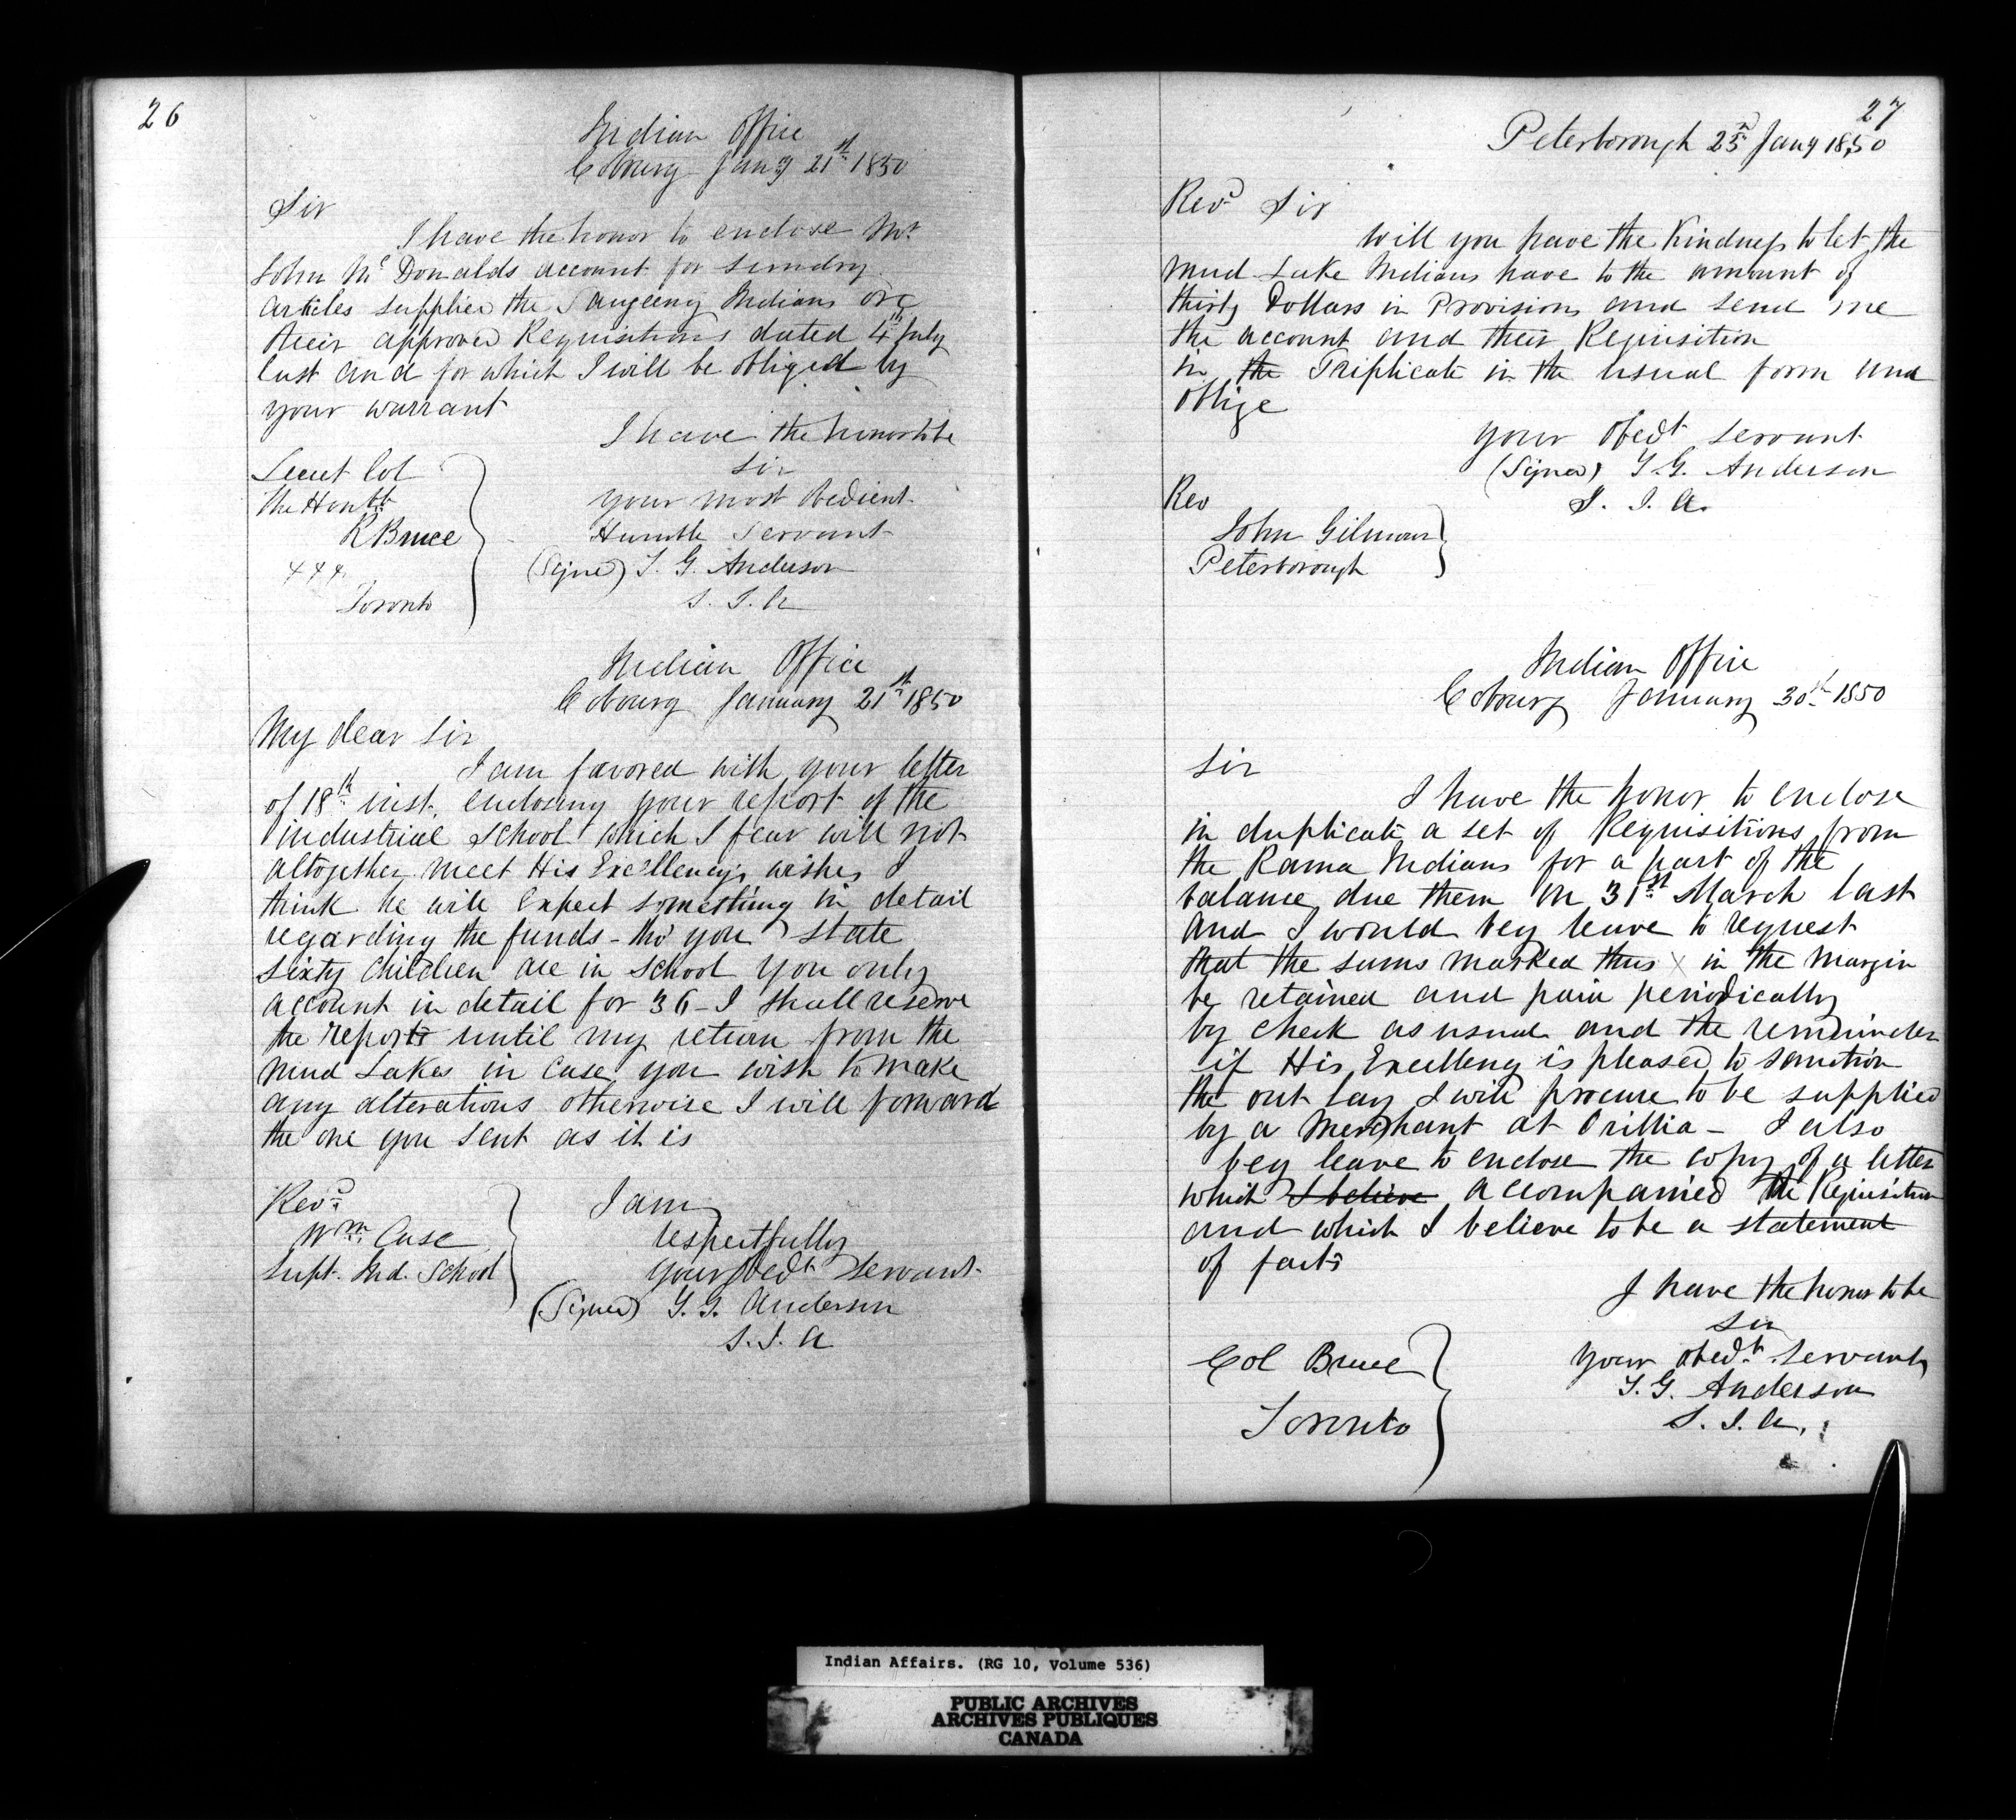 26
Indian Office
Cobourg Jany 21st 1850
Sir
I have the honor to enclose Mr
John Mc Donalds account for sundry
articles supplied the Saugeeng Indians on
their approved Requisitions dated 4th July
last and for which I will be obliged by
your warrant
I have the honor to be
Sir
your most obedient
Humble Servant
(Signed) T. G. Anderson
S. I. A
Secret Col
The Honble
R Bruce
Toronto
Indian Office
Cobourg January 21st 1850
My dear Sir
I am favored with your letter
of 18th inst. enclosing your report of the
industrial School which I fear will not
altogether meet His Excellency's wishes I
think he will expect something in detail
regarding the funds - tho' you state
sixty Children are in School you only
account in detail for 36 - I shall reserve
the report until my return from the
Mud Lakes in case you wish to make
any alterations otherwise I will forward
the one you sent as it is
I am
respectfully
your obedt servant
(Signed) T. G. Anderson
S. I. A
Revd
Wm Case
Supt. Ind. School
27
Peterborough Jany 1850
Revd Sir
Will you have the Kindness to let the
Mud Lake Indians have to the amount of
thirty Dollars in Provisions and send me
the account and their Requisition
in the Triplicate in the usual form and
oblige
your obedt servant
(Signed) T. G. Anderson
S. I. A.
Rev
John Gilmour
Peterborough
Indian Office
Cobourg January 30th 1850
Sir
I have the honor to enclose
in duplicate a set of Requisitions from
the Rama Indians for a part of the
balance due them on 31st March last
and I would beg leave to request
that the sums marked thus x in the margin
be retained and paid periodically
by check as usual and the remainder
if His Excellency is pleased to sanction
the out lay I will procure to be supplied
by a Merchant at Orillia - I also
beg leave to enclose the copy of a letter
which I believe accompanied the Requisition
and which I believe to be a statement
of facts
I have the honor to be
Sir
your obedt. servant
T. G. Anderson
S. I. A.
Col Bruce
Toronto
Indian Affairs. (RG 10, Volume 536)
PUBLIC ARCHIVES
ARCHIVES PUBLIQUES
CANADA